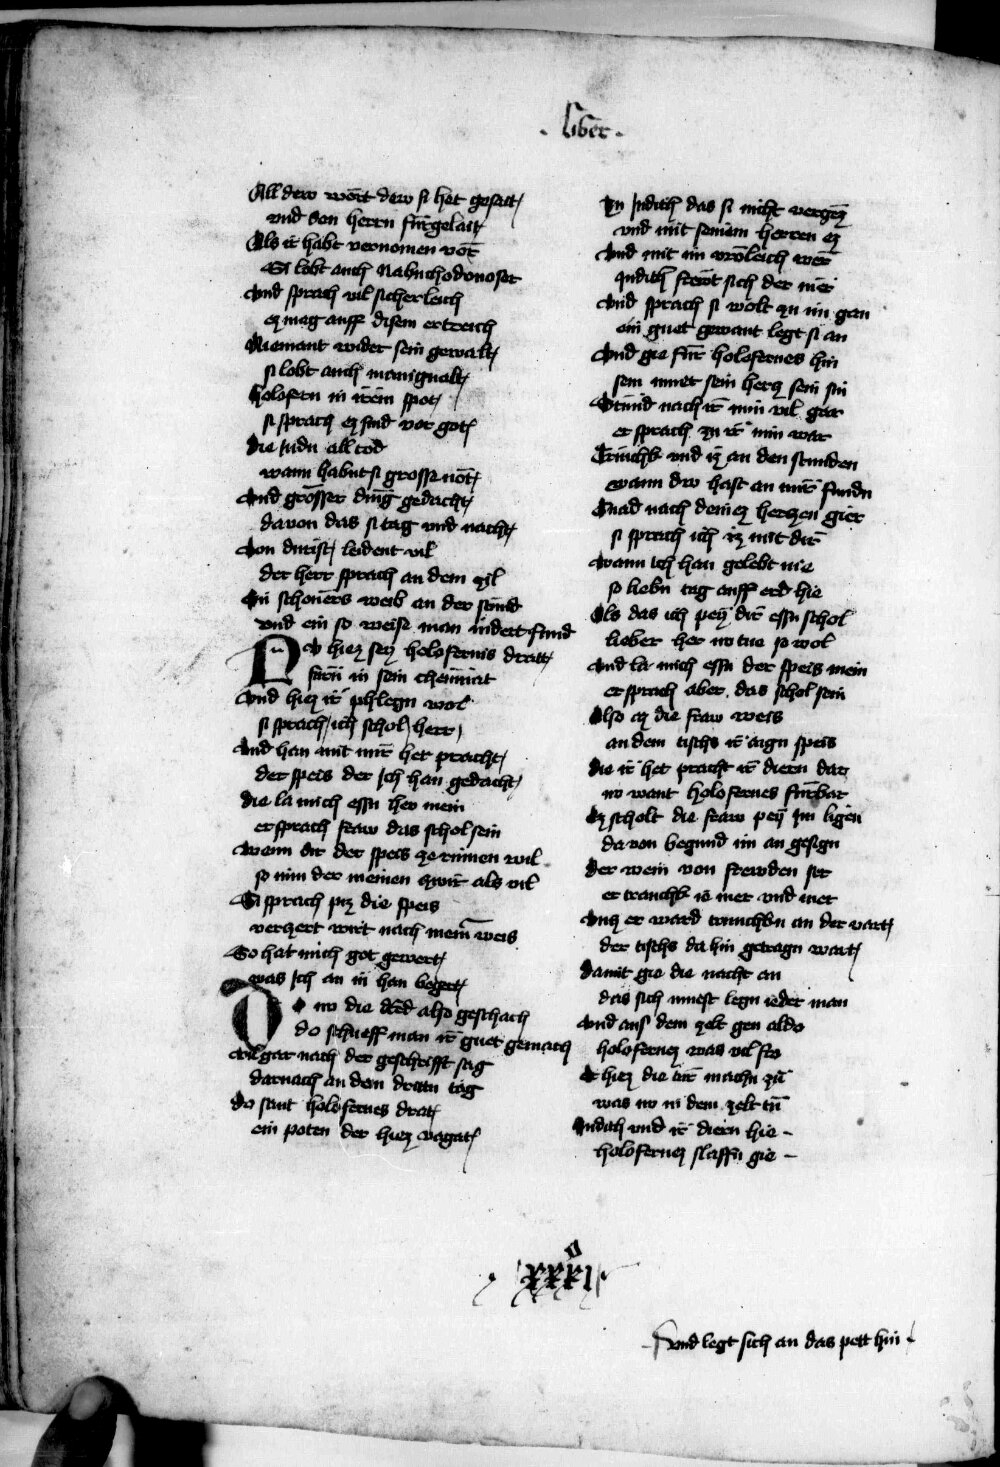 . liber .
All dew wort dew si het gesait
vnd den herrn fürgelait
Als ir habt vernomen vor
Si lobt auch Nabuchodonosor
Vnd sprach vil sicherleich
ez mag auff disem ertreich
Niemant wider sein gewalt
si lobt auch manigualt
Holofern in irem spot
si sprach ez sind vor got
die Judn all tod
wann habnt si grosse not
Vnd grosser ding gedacht
davon das si tag vnd nacht
Von durst leident vil
der herr sprach an dem zil
Ein schoners weib an der stund
vnd ein so weise man indert fund
Nv hiez sey holofernis drat
furn in sein chemnat
Vnd hiez ir phlegn wol
si sprach ich schol herr
Vnd han mit mir her pracht
der speis der ich han gedacht
die la mich essn her mein
er sprach fraw das schol sein
Wenn dir der speis zerinnen wil
so nim der meinen zwir als vil
Si sprach piz die speis
verzert wirt nach meim weis
So hat mich got gewert
was ich an in han begert
Do nv die red also geschach
do schueff man ir guet gemach
Vil gar nach der geschrifft sag
darnach an dem drittn tag
Do sant holofernes drat
ein poten der hiez vagat
Zu Judith das si nicht vergez
vnd mit seinem herren ez
Vnd mit im vroleich wer
Judith frewt sich der mer
Vnd sprach si wolt zu im gan
ein guet gewant legt si an
Vnd gie für holofernes hin
sein muet sein hercz sein sin
Stund nach ir nun vil gar
er sprach zu ir nim war
Trinchk vnd iz an den stunden
wann dw hast an mir fundn
Gnad nach deines herczen gier
si sprach ich iz mit dir
Wann ich han gelebt nie
so liebn tag auff erd hie
Als das ich pey dir essn schol
lieber her nv tue so wol
Vnd la mich essn der speis mein
er sprach aber das schol sein
Also az die fraw weis
an dem tischs ir aign speis
die ir het pracht ir diern dar
nv want holofernes fürbar
Ez scholt die fraw pey im ligen
davon begund im an gesign
der wein von frewden ser
er tranchk ie mer vnd mer
Vntz er ward trunchkn an der vart
der tischs da hin getragn wart
Damit gie die nacht an
das sich muest legn ieder man
Vnd aus dem zelt gen aldo
holofernez was vil fro
Er hiez die tür machn zu
was nv in dem zelt tu
Judith vnd ir diern hie
holofernez slaffn gie
xxxi
vnd legt sich an das pett hin